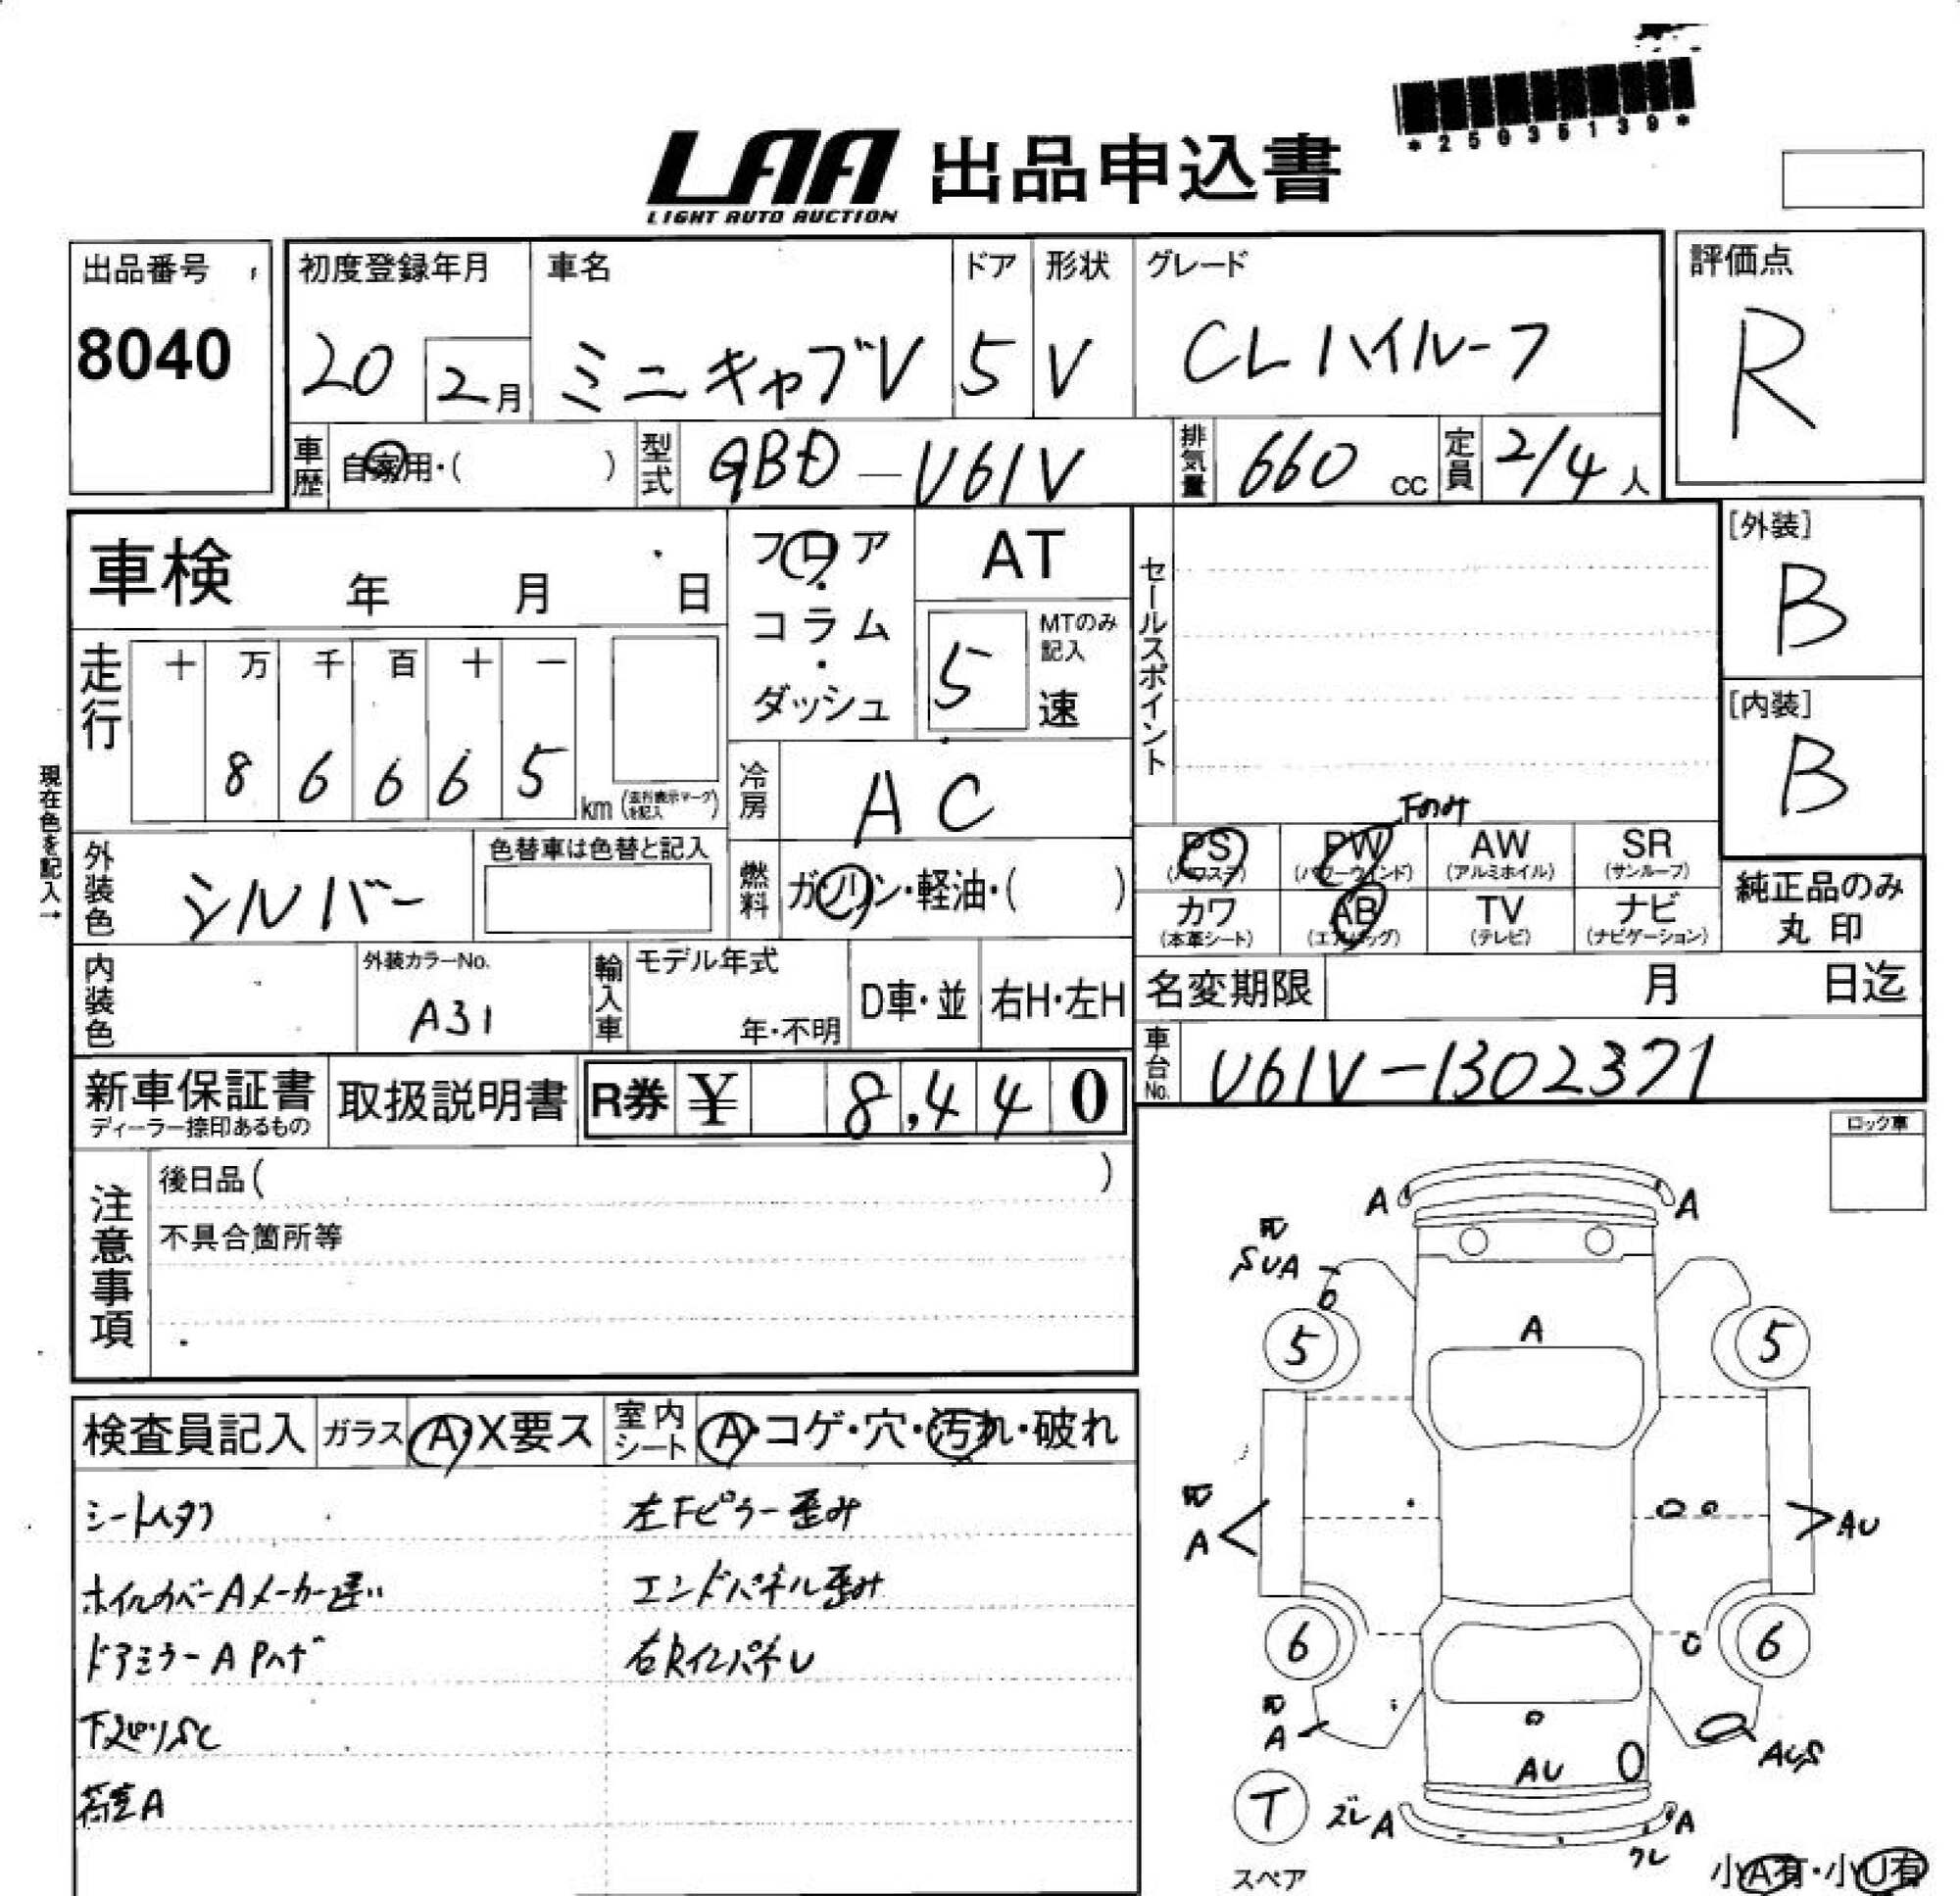 *25035139*
LAA 出品申込書
LIGHT AUTO AUCTION
出品番号
8040
初度登録年月
20 2月
車名
ミニキャブV
ドア
5
形状
V
グレード
CLハイルーフ
評価点
R
車歴 自家用・( )
型式 GBD-U61V
排気量 660 cc
定員 2/4 人
車検 年 月 日
フロア・コラム・ダッシュ
AT
5 速
MTのみ記入
セールスポイント
[外装]
B
[内装]
B
走行
十 万 千 百 十 一
8 6 6 6 5 km
(走行表示マークを記入)
現在色を記入→
冷房 AC
外装色 シルバー
色替車は色替と記入
燃料 ガソリン・軽油・( )
Fのみ
PS (パワステ)
PW (パワーウインド)
AW (アルミホイル)
SR (サンルーフ)
カワ (本革シート)
AB (エアバッグ)
TV (テレビ)
ナビ (ナビゲーション)
純正品のみ
丸印
内装色
外装カラーNo.
A31
輸入車
モデル年式
年・不明
D車・並
右H・左H
名変期限 月 日迄
車台No. U61V-1302371
新車保証書
ディーラー捺印あるもの
取扱説明書
R券 ¥ 8,440
ロック車
注意事項
後日品( )
不具合箇所等
検査員記入
ガラス A・X要ス
室内シート A・コゲ・穴・汚れ・破れ
左Fピラー歪み
ホイルカバーAメーカー違い
エンドパネル歪み
ドアミラーA Pハゲ
右Rインパネル
荷室A
A A
SUA
A
5 5
A AU
6 6
A
AU
AUS
T
スペア
ズレ A A
ワレ
小A有・小U有